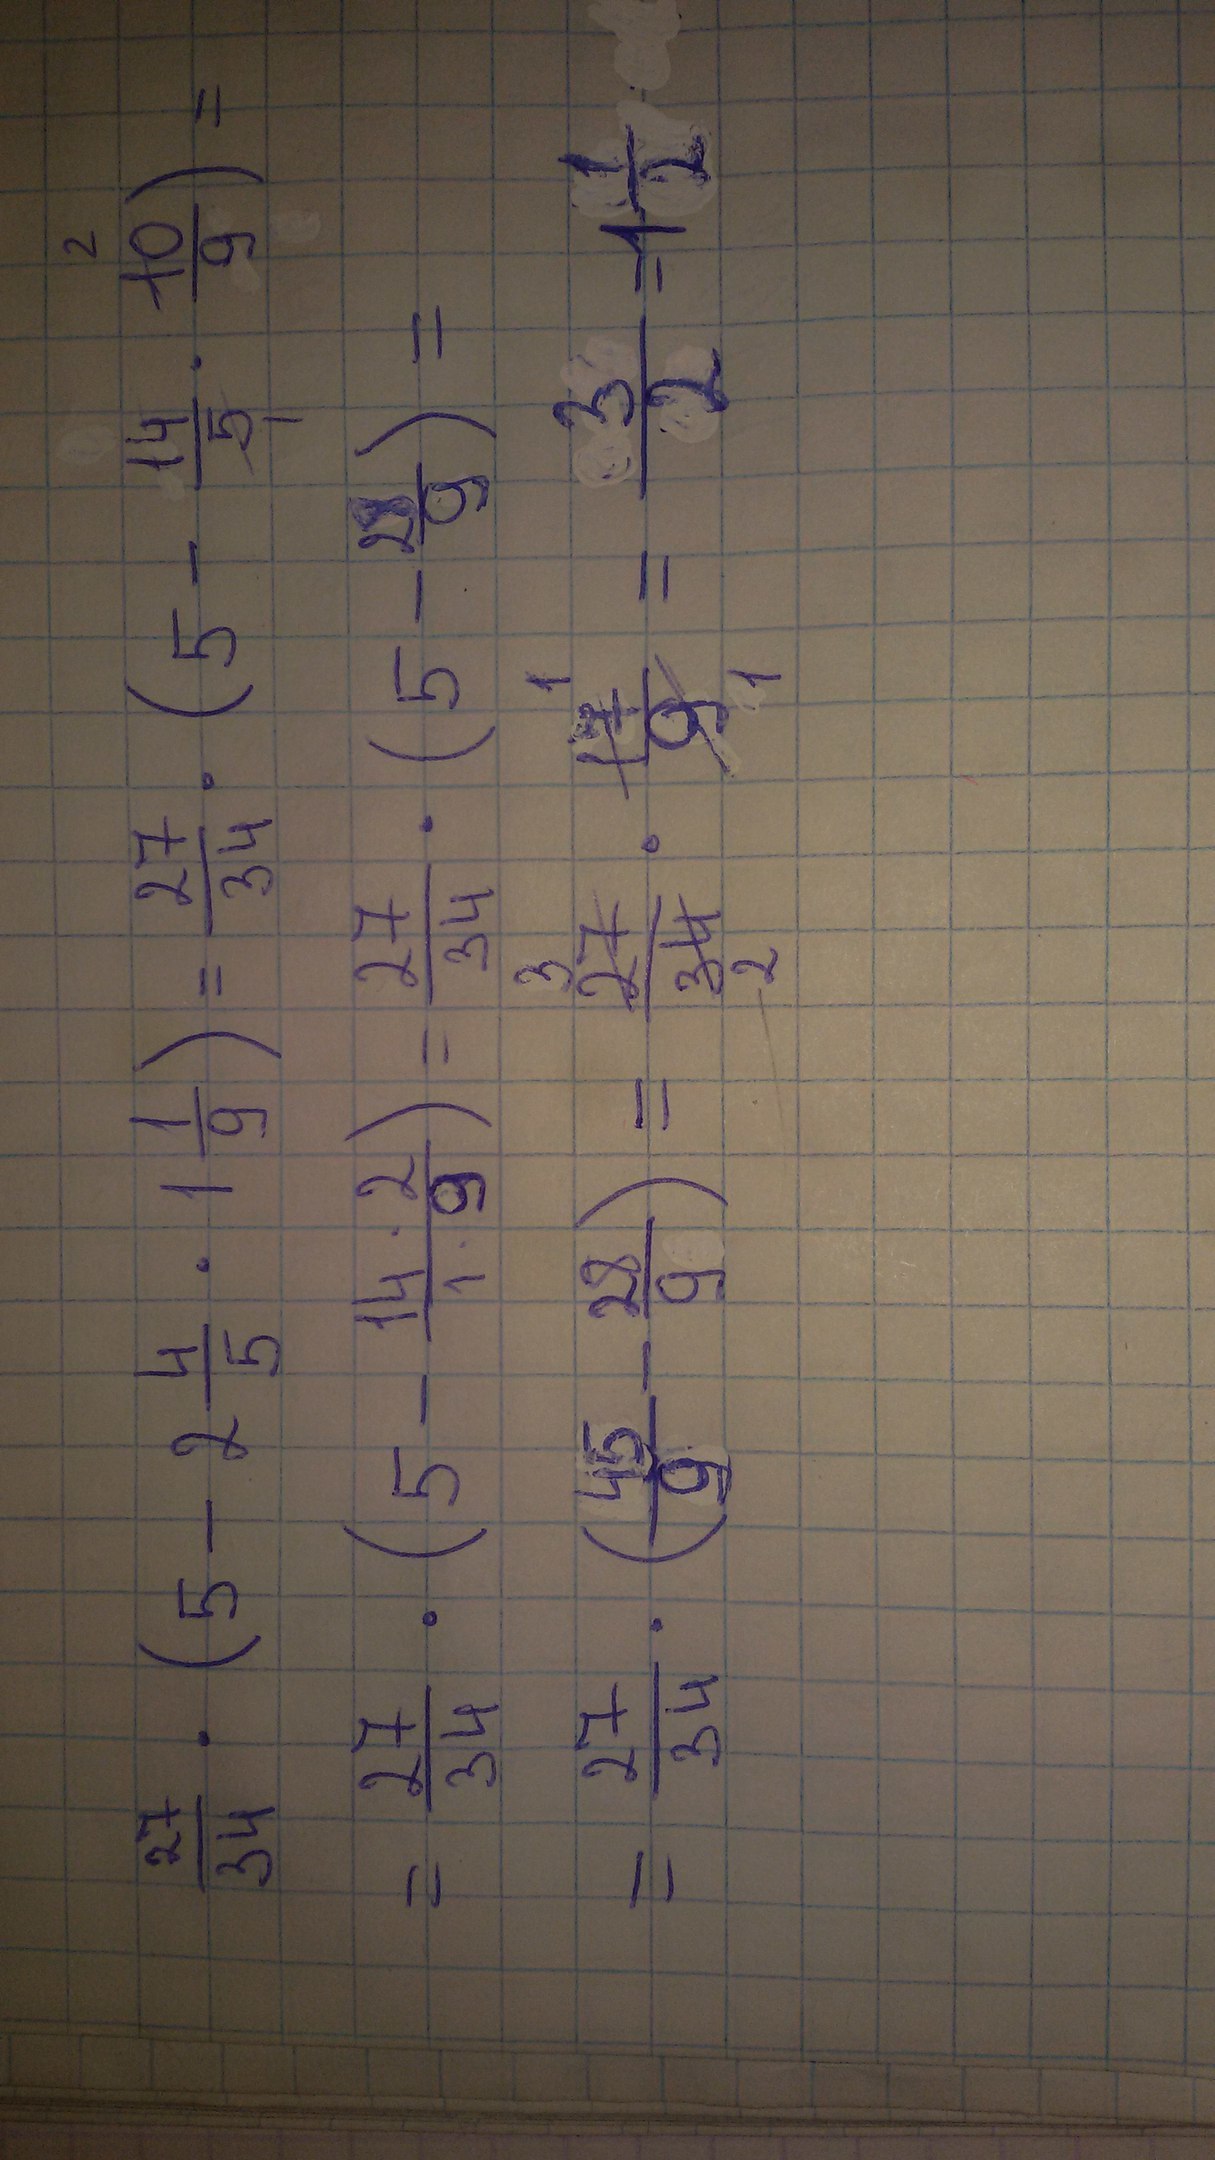 27/34 · (5 - 2 4/5 · 1 1/9) = 27/34 · (5 - 14/5 1 · 10/9 2) =
= 27/34 · (5 - 14 · 2/1 · 9) = 27/34 · (5 - 28/9) =
= 27/34 · (45/9 - 28/9) = 3 27/34 2 · 17/9 1 1 = 3/2 = 1 1/2